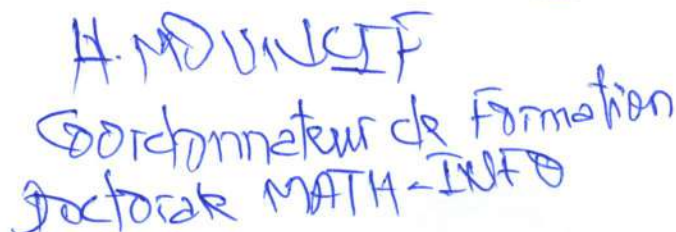 H. MOUNCIF
Coordonnateur de Formation
Doctorale MATH-INFO